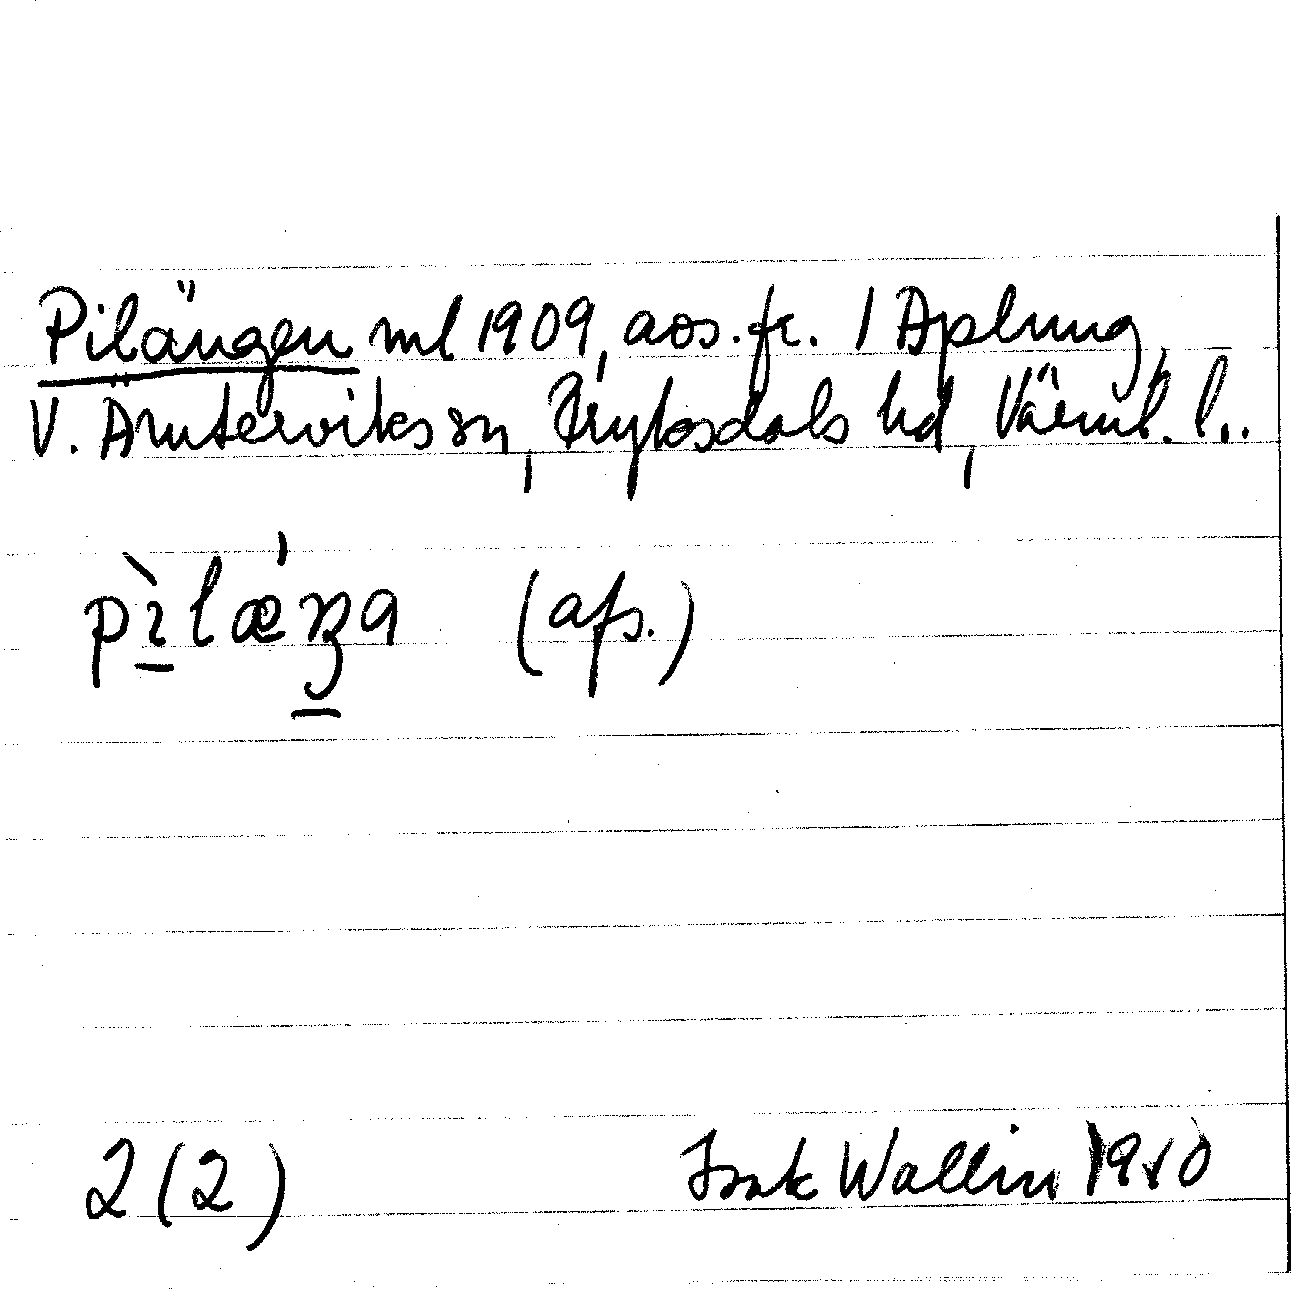 Pilängen ml 1909, aos. fr. 1 Aplung,
V. Ämterviks sn, Fryksdals hd, Värml. l..
(afs.)
2(2) Isak Wallin 1910